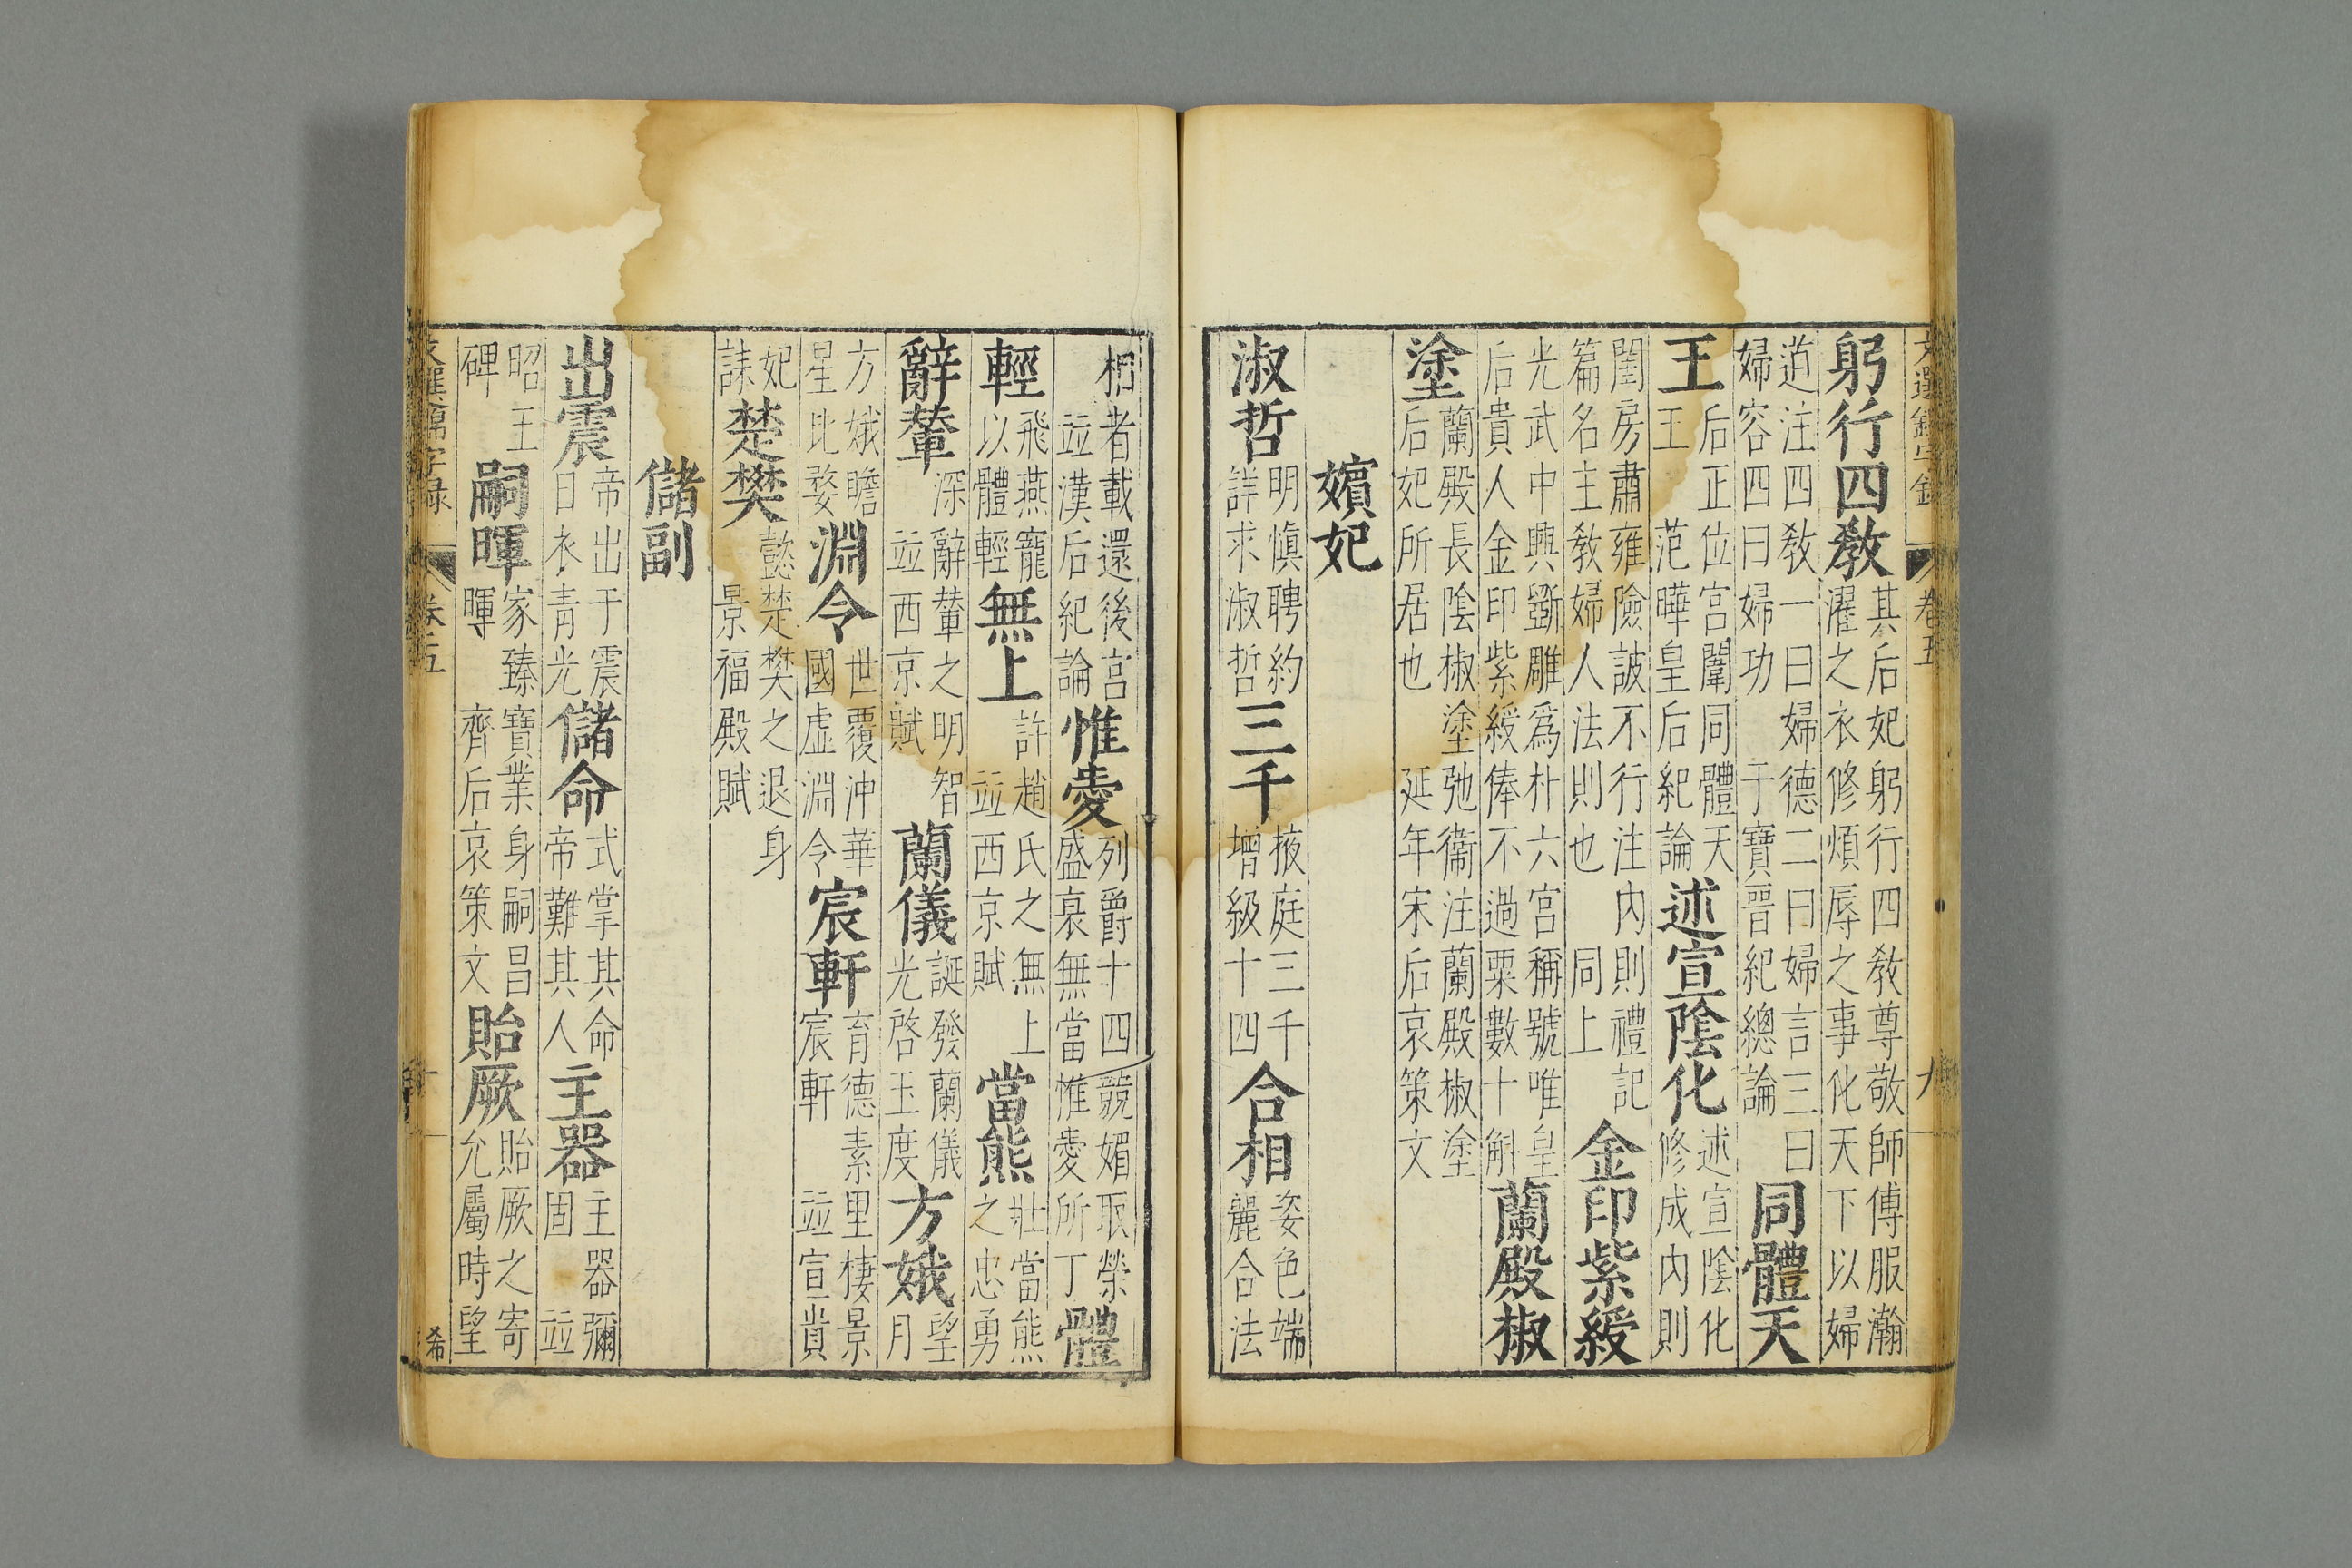 文選錦字錄 卷五 九
躬行四教 其后妃躬行四教尊敬師傅服瀚濯之衣修煩辱之事化天下以婦
道注四教一曰婦德二曰婦言三曰婦容四曰婦功 于寶晉紀總論 同體天
王 后正位宮闈同體天王 范曄皇后紀論 述宣陰化 述宣陰化修成內則
閨房肅雍險詖不行注內則禮記篇名主教婦人法則也 同上 金印紫綬
光武中興斲雕為朴六宮稱號唯皇后貴人金印紫綬俸不過粟數十斛 蘭殿椒
塗 蘭殿長陰椒塗弛衞注蘭殿椒塗后妃所居也 延年宋后哀策文
嬪妃
淑哲 明慎聘約詳求淑哲 三千 掖庭三千增級十四 合相 姿色端麗合法
相者載還後宮 並漢后紀論 惟愛 列爵十四競媚取榮盛衰無常惟愛所丁 體
輕 飛燕寵以體輕 無上 許趙氏之無上 並西京賦 當熊 壯當熊之忠勇
辭輦 深辭輦之明智 並西京賦 蘭儀 誕發蘭儀光啓玉度 方娥 望月
方娥瞻星比婺 淵令 世覆沖華國虛淵令 宸軒 育德素里棲景宸軒 並宣貴
妃誄 楚樊 懿楚樊之退身 景福殿賦
儲副
出震 帝出于震日衣青光 儲命 式掌其命帝難其人 主器 主器彌固 並
昭王碑 嗣暉 家臻寶業身嗣昌暉 齊后哀策文 貽厥 貽厥之寄允屬時望
文選錦字錄 卷五 希